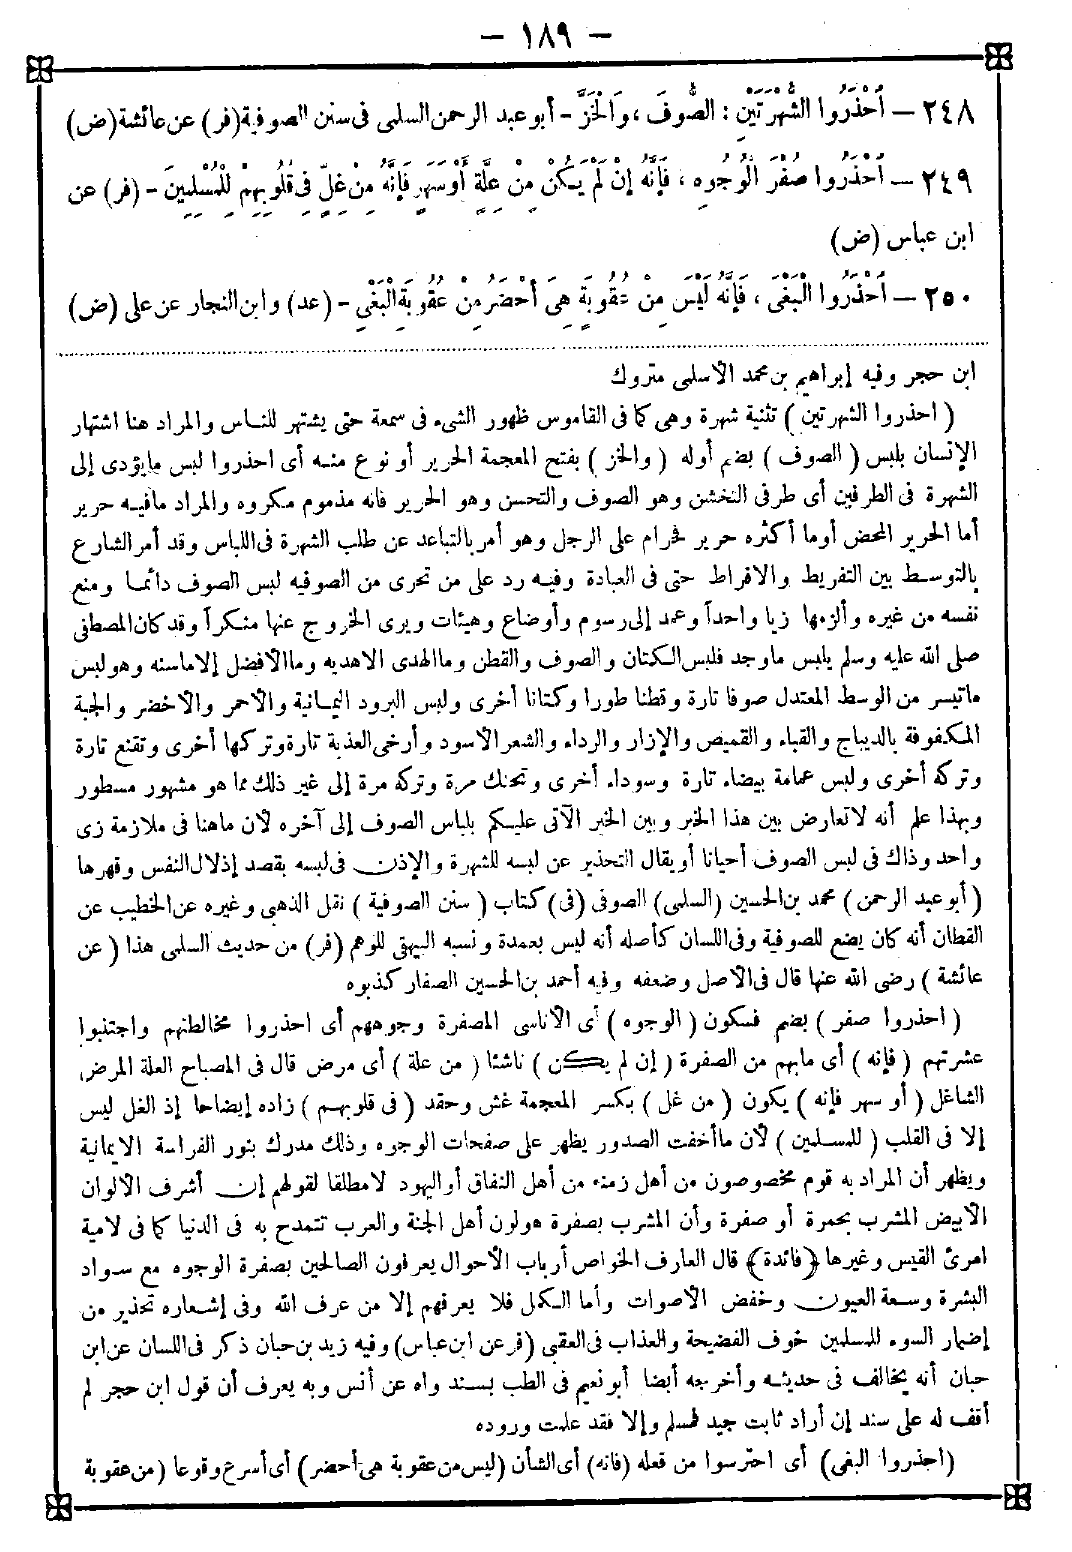 — ١٨٩ —
٢٤٨ — اَحْذَرُوا الشُّهْرَتَيْنِ : الصُّوفَ ، وَالْخَزَّ - أبو عبد الرحمن السلمى فى سنن الصوفية (فر) عن عائشة (ض)
٢٤٩ — اَحْذَرُوا صُفْرَ الْوُجُوهِ ، فَإِنَّهُ إِنْ لَمْ يَكُنْ مِنْ عِلَّةٍ أَوْ سَهَرٍ فَإِنَّهُ مِنْ غِلٍّ فِى قُلُوبِهِمْ لِلْمُسْلِمِينَ - (فر) عن
ابن عباس (ض)
٢٥٠ — اَحْذَرُوا الْبَغْىَ ، فَإِنَّهُ لَيْسَ مِنْ عُقُوبَةٍ هِىَ أَحْضَرُ مِنْ عُقُوبَةِ الْبَغْىِ - (عد) وابن النجار عن على (ض)
ابن حجر وفيه إبراهيم بن محمد الأسلمى متروك
( احذروا الشهرتين ) تثنية شهرة وهى كما فى القاموس ظهور الشىء فى سمعة حتى يشتهر للناس والمراد هنا اشتهار
الإنسان بلبس ( الصوف ) بضم أوله ( والخز ) بفتح المعجمة الحرير أو نوع منه أى احذروا لبس مايؤدى إلى
الشهرة فى الطرفين أى طرفى التخشن وهو الصوف والتحسن وهو الحرير فانه مذموم مكروه والمراد مافيه حرير
أما الحرير المحض أوما أكثره حرير فحرام على الرجل وهو أمر بالتباعد عن طلب الشهرة فى اللباس وقد أمر الشارع
بالتوسط بين التفريط والافراط حتى فى العبادة وفيه رد على من تحرى من الصوفيه لبس الصوف دائما ومنع
نفسه من غيره وألزمها زيا واحداً وعمد إلى رسوم وأوضاع وهيئات ويرى الخروج عنها منكراً وقد كان المصطفى
صلى الله عليه وسلم يلبس ماوجد فلبس الكتان والصوف والقطن وما الهدى الاهديه وما الأفضل إلا ماسنه وهو لبس
ماتيسر من الوسط المعتدل صوفا تارة وقطنا طورا وكتانا أخرى ولبس البرود اليمانية والأحمر والأخضر والجبة
المكفوفة بالديباج والقباء والقميص والإزار والرداء والشعر الأسود وأرخى العذبة تارة وتركها أخرى وتقنع تارة
وتركه أخرى ولبس عمامة بيضاء تارة وسوداء أخرى وتحنك مرة وتركه مرة إلى غير ذلك مما هو مشهور مسطور
وبهذا علم أنه لاتعارض بين هذا الخبر وبين الخبر الآتى عليكم بلباس الصوف إلى آخره لأن ماهنا فى ملازمة زى
واحد وذاك فى لبس الصوف أحيانا أو يقال التحذير عن لبسه للشهرة والإذن فى لبسه بقصد إذلال النفس وقهرها
( أبو عبد الرحمن ) محمد بن الحسين (السلمى) الصوفى (فى) كتاب ( سنن الصوفية ) نقل الذهبى وغيره عن الخطيب عن
القطان أنه كان يضع للصوفية وفى اللسان كأصله أنه ليس بعمدة ونسبه البيهقى للوهم (فر) من حديث السلمى هذا ( عن
عائشة ) رضى الله عنها قال فى الأصل وضعفه وفيه أحمد بن الحسين الصفار كذبوه
( احذروا صفر ) بضم فسكون ( الوجوه ) أى الأناسى المصفرة وجوههم أى احذروا مخالطتهم واجتنبوا
عشرتهم ( فإنه ) أى مابهم من الصفرة ( إن لم يكن ) ناشئا ( من علة ) أى مرض قال فى المصباح العلة المرض
الشاغل ( أو سهر فإنه ) يكون ( من غل ) بكسر المعجمة غش وحقد ( فى قلوبهم ) زاده إيضاحا إذ الغل ليس
إلا فى القلب ( للمسلمين ) لأن ما أخفت الصدور يظهر على صفحات الوجوه وذلك مدرك بنور الفراسة الايمانية
ويظهر أن المراد به قوم مخصوصون من أهل زمنه من أهل النفاق أو اليهود لا مطلقا لقولهم إن أشرف الألوان
الأبيض المشرب بحمرة أو صفرة وأن المشرب بصفرة هو لون أهل الجنة والعرب تتمدح به فى الدنيا كما فى لامية
امرئ القيس وغيرها ﴿فائدة﴾ قال العارف الخواص أرباب الأحوال يعرفون الصالحين بصفرة الوجوه مع سواد
البشرة وسعة العيون وخفض الأصوات وأما الكمل فلا يعرفهم إلا من عرف الله وفى إشعاره تحذير من
إضمار السوء للمسلمين خوف الفضيحة والعذاب فى العقبى (فر عن ابن عباس) وفيه زيد بن حبان ذكر فى اللسان عن ابن
حبان أنه يخالف فى حديثه وأخرجه أيضا أبو نعيم فى الطب بسند واه عن أنس وبه يعرف أن قول ابن حجر لم
أقف له على سند إن أراد ثابت جيد فمسلم وإلا فقد علمت وروده
(احذروا البغى) أى احترسوا من فعله (فانه) أى الشأن (ليس من عقوبة هى أحضر) أى أسرع وقوعا (من عقوبة